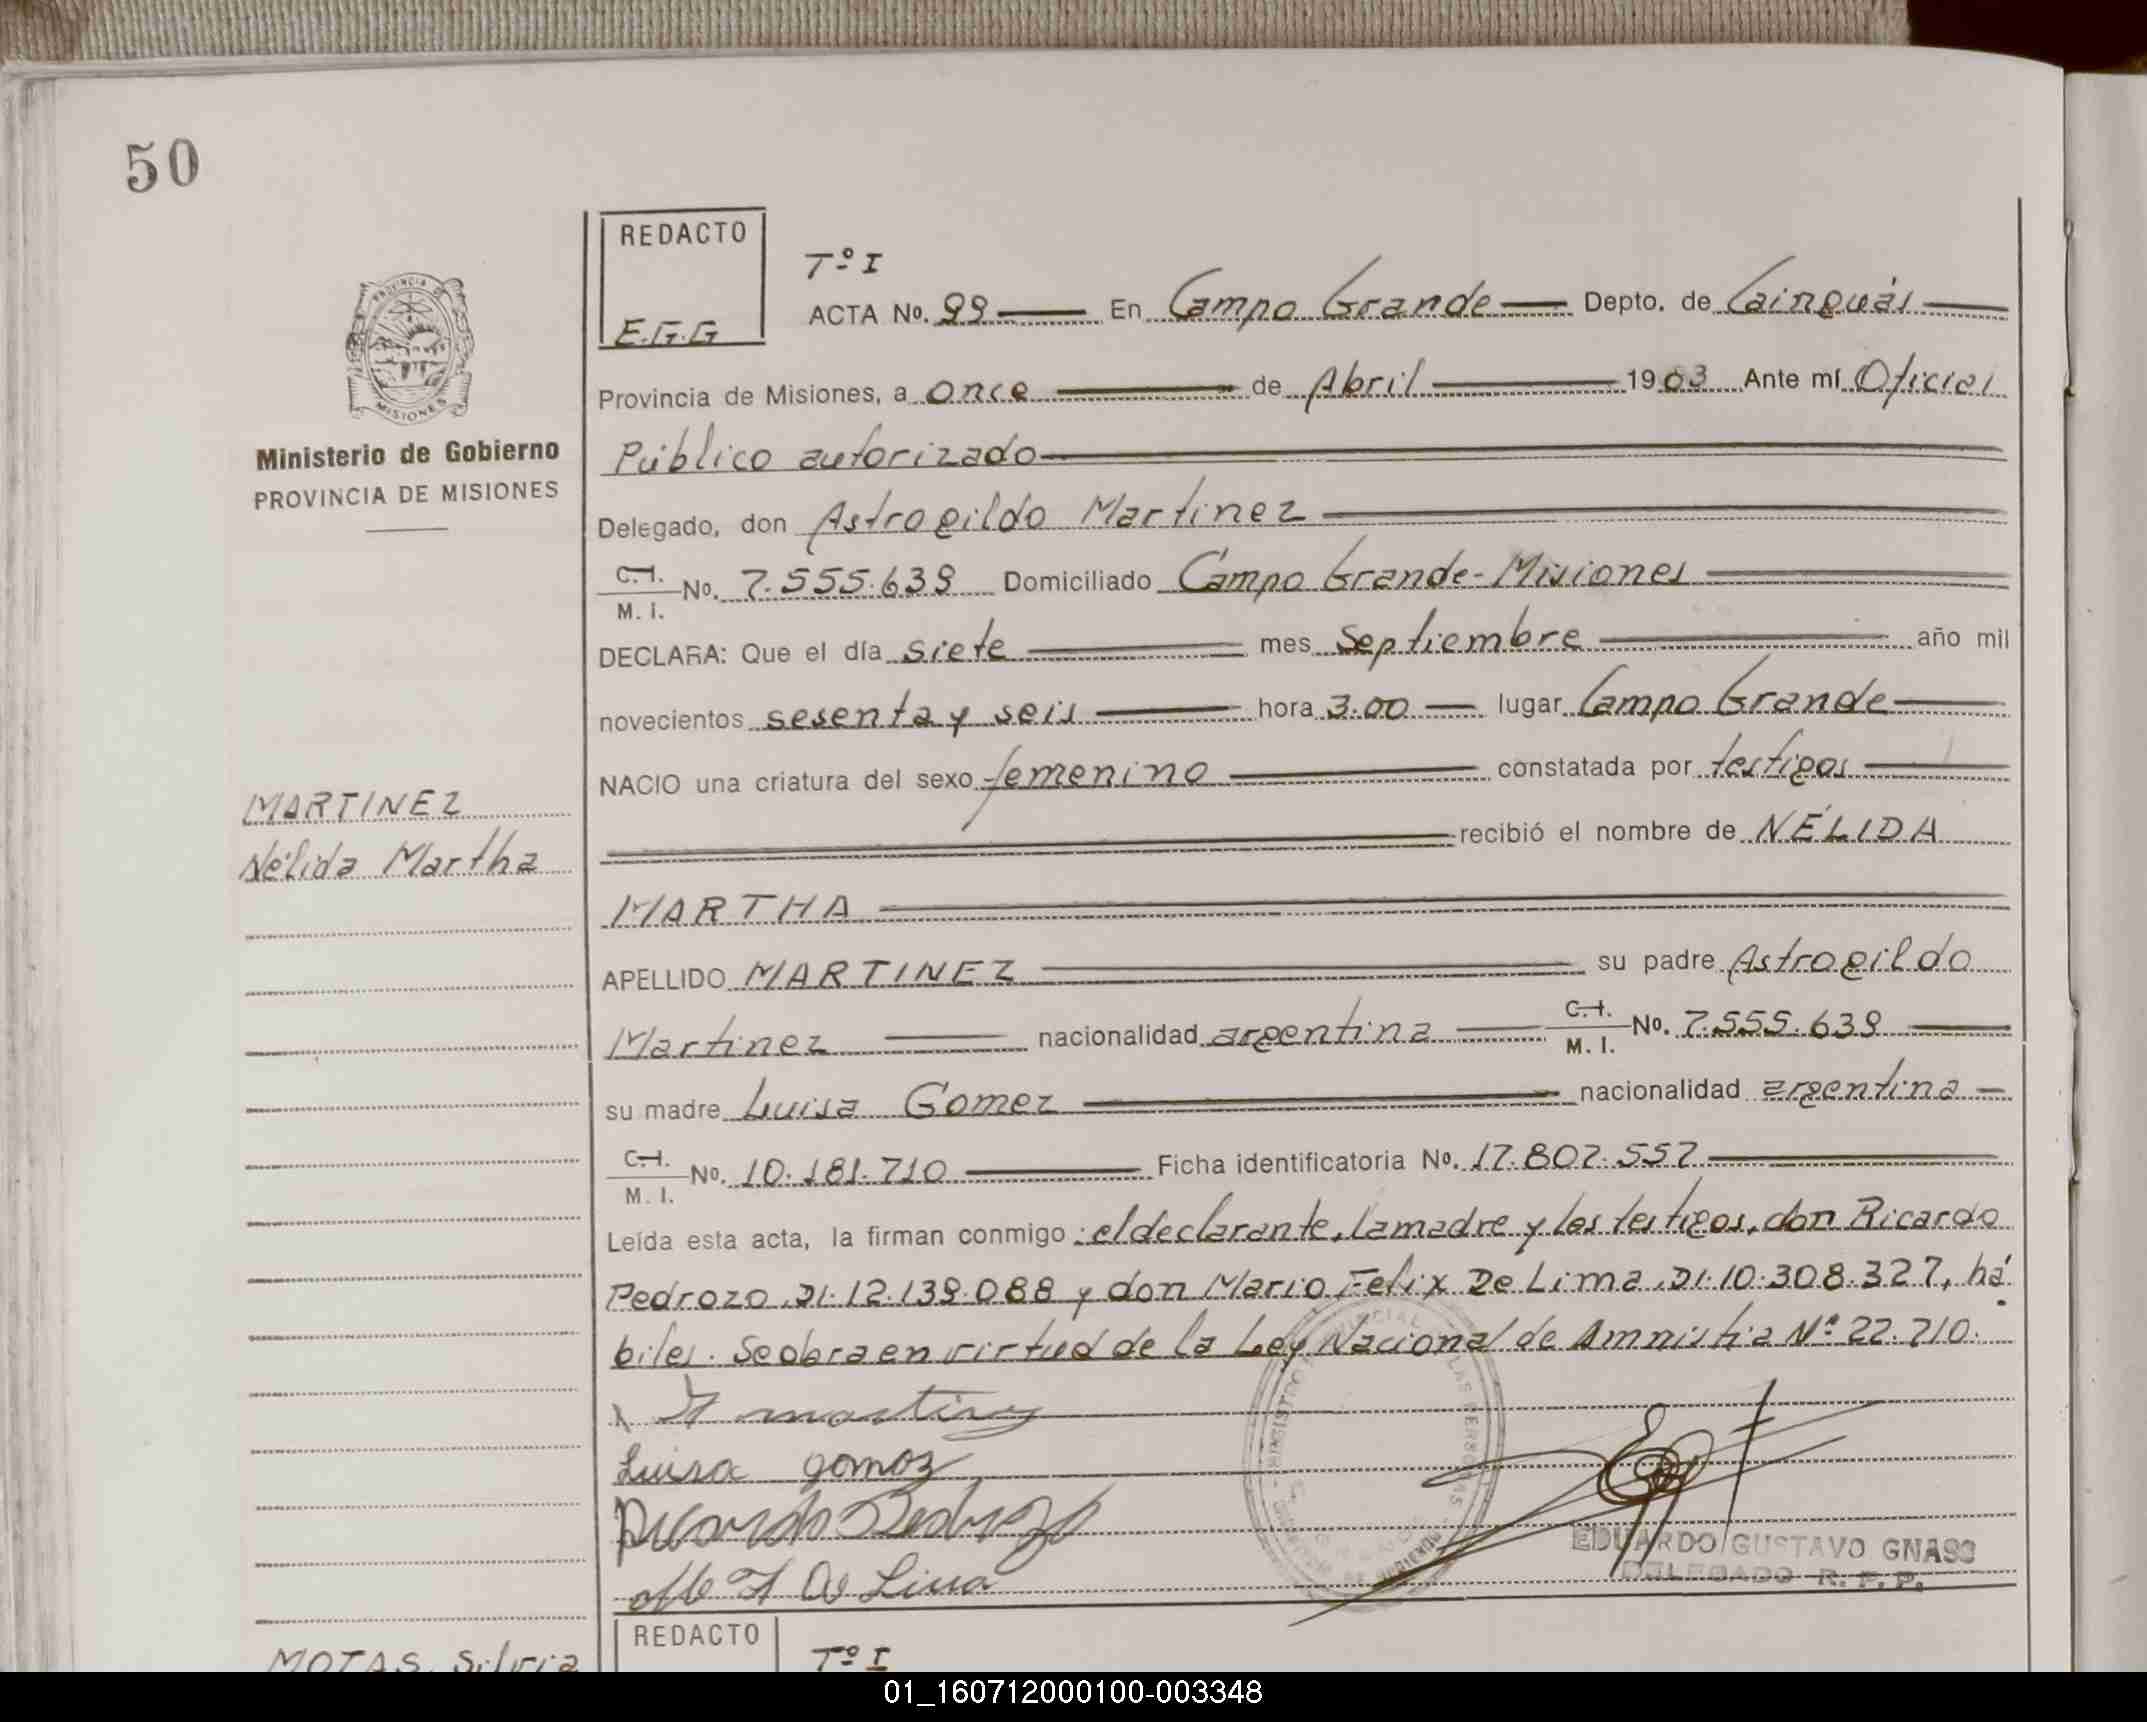 50
REDACTO
E.G.G
Tº I
ACTA No. 99 En Campo Grande Depto. de Cainguás
Provincia de Misiones, a once de Abril 1983 Ante mí Oficial
Público autorizado
Delegado, don Astrogildo Martinez
C.I. M. I. No. 7.555.639 Domiciliado Campo Grande - Misiones
DECLARA: Que el día siete mes Septiembre año mil
novecientos sesenta y seis hora 3.00 lugar Campo Grande
NACIO una criatura del sexo femenino constatada por testigos
recibió el nombre de NÉLIDA
MARTHA
APELLIDO MARTINEZ su padre Astrogildo
Martinez nacionalidad argentina C.I. M. I. No. 7.555.639
su madre Luisa Gomez nacionalidad argentina
C.I. M. I. No. 10.181.710 Ficha identificatoria No. 17.807.557
Leída esta acta, la firman conmigo: el declarante, la madre y los testigos, don Ricardo
Pedrozo, DI. 12.139.088 y don Mario Felix De Lima, DI. 10.308.327, há
biles. Se obra en virtud de la Ley Nacional de Amnistia Nº 22.710.
A martinez
Luisa gomez
Ricardo Pedrozo
M F De Lima
EDUARDO GUSTAVO GNASS
DELEGADO R. P. P.
PROVINCIA DE
MISIONES
Ministerio de Gobierno
PROVINCIA DE MISIONES
MARTINEZ
Nélida Martha
MOTAS, Silvia
REDACTO
Tº I
01_160712000100-003348